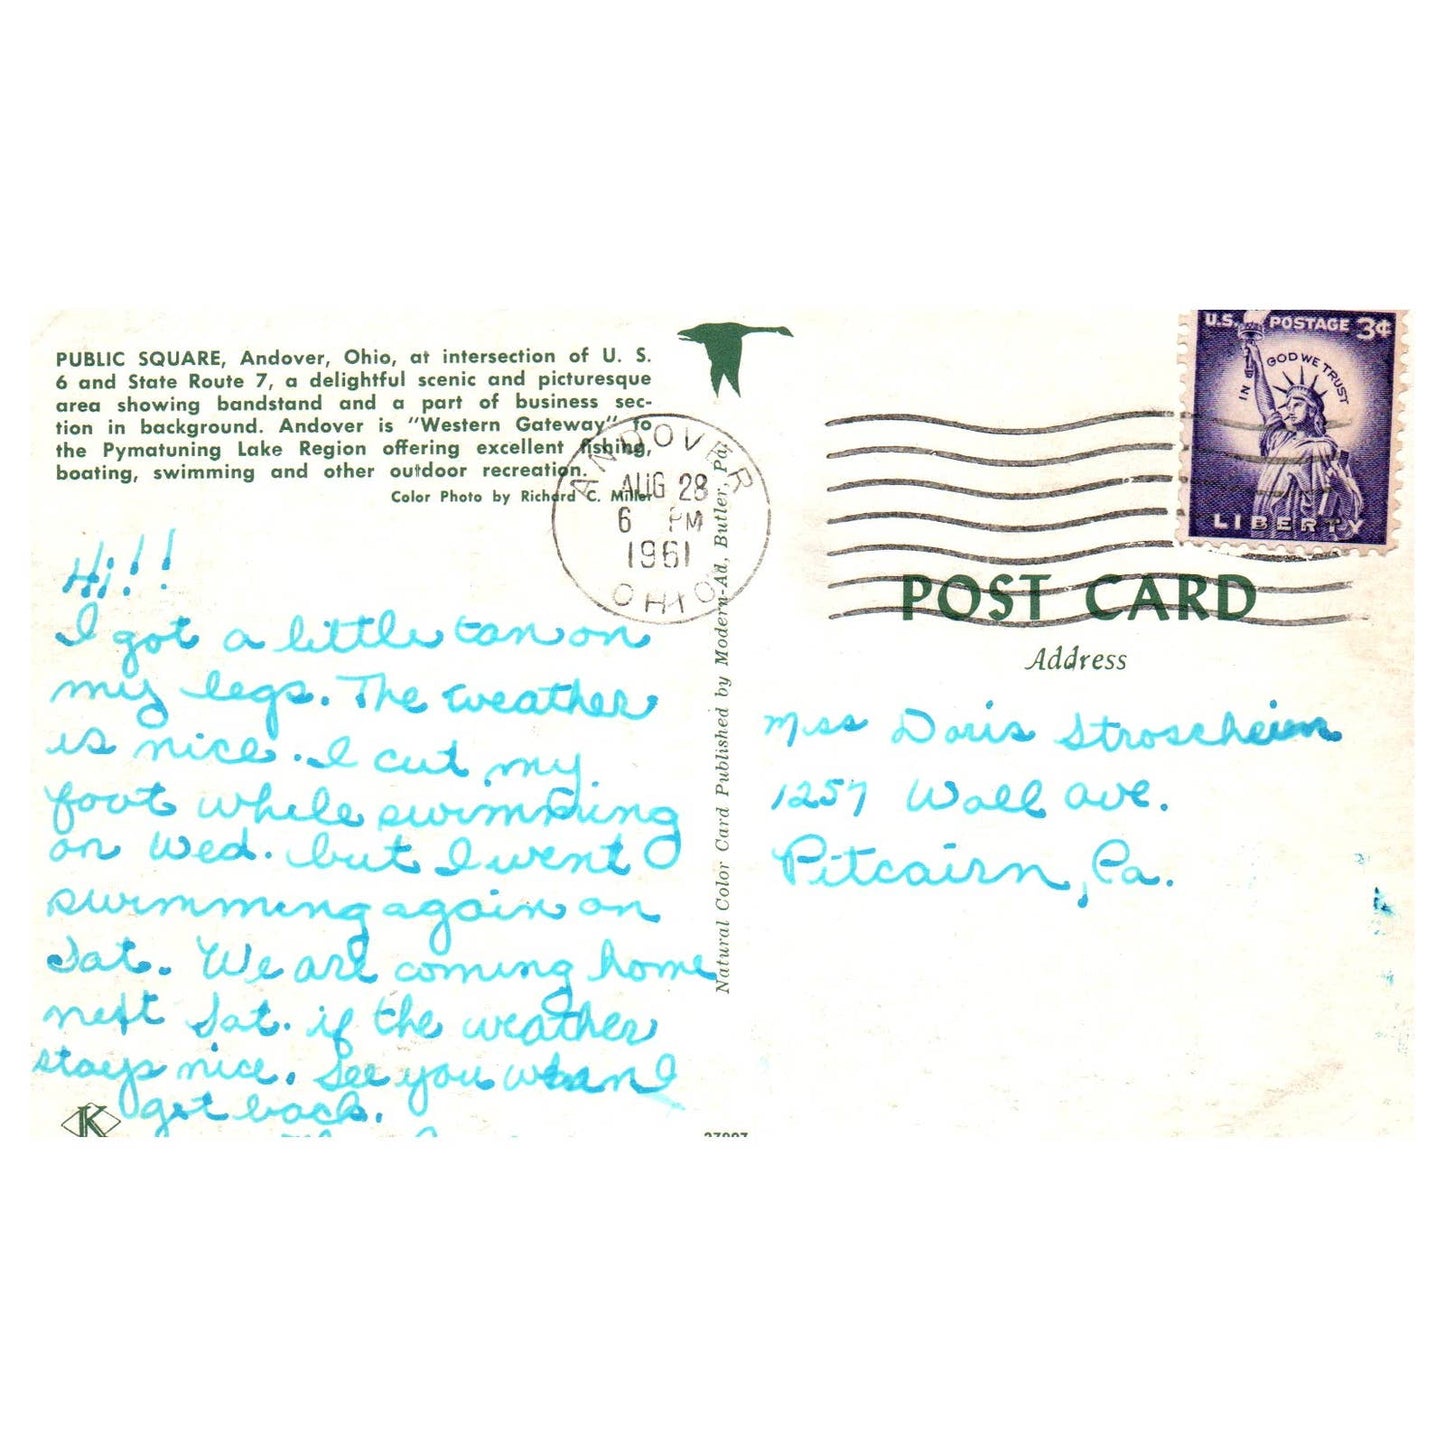 PUBLIC SQUARE, Andover, Ohio, at intersection of U. S.
6 and State Route 7, a delightful scenic and picturesque
area showing bandstand and a part of business sec-
tion in background. Andover is "Western Gateway" to
the Pymatuning Lake Region offering excellent fishing,
boating, swimming and other outdoor recreation.
Color Photo by Richard C. Miller
Hi!!
I got a little tan on
my legs. The weather
is nice. I cut my
foot while swimming
on Wed. but I went
swimming again on
Sat. We are coming home
next Sat. if the weather
stays nice. See you when I
get back.
K
Natural Color Card Published by Modern-Ad, Butler, Pa.
ANDOVER
AUG 28
6 PM
1961
OHIO
U.S. POSTAGE 3¢
IN GOD WE TRUST
LIBERTY
POST CARD
Address
Miss Doris Stroscheim
1257 Wall Ave.
Pitcairn, Pa.